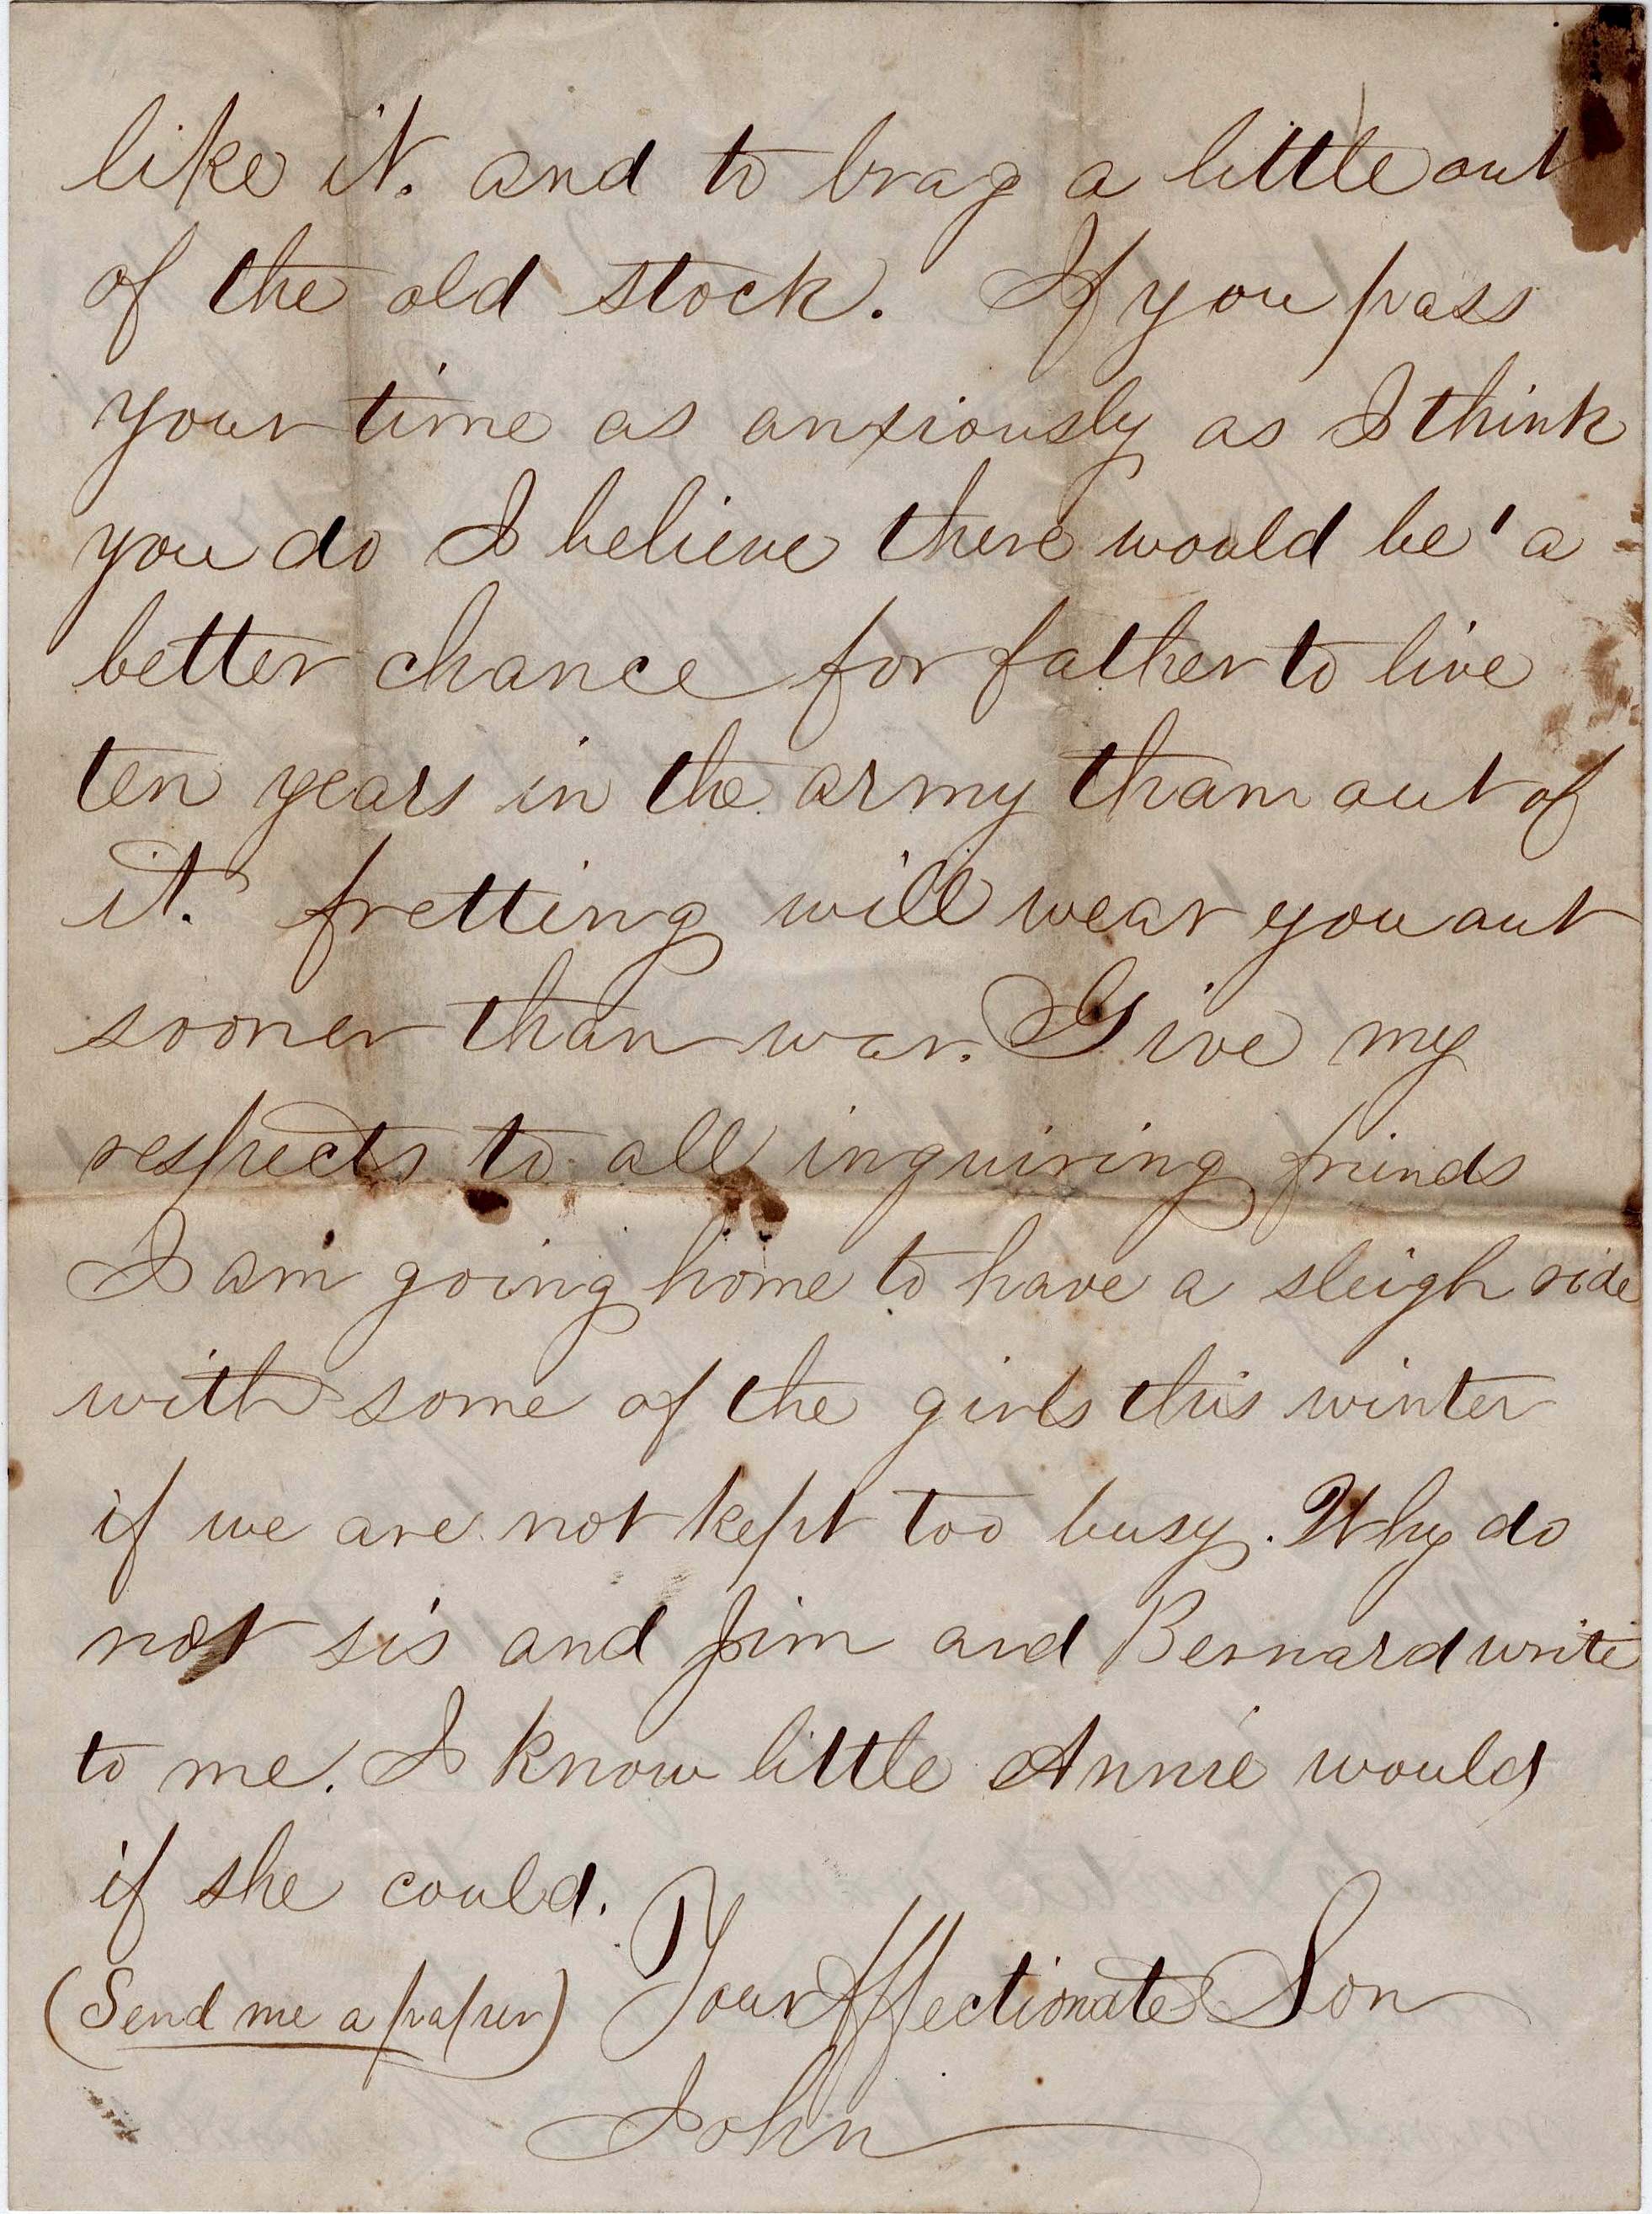 like it. and to brag a little out
of the old stock. If you pass
your time as anxiously as I think
you do I believe there would be a
better chance for father to live
ten years in the army than out of
it. fretting will wear you out
sooner than war. Give my
respects to all inquiring friends
I am going home to have a sleigh ride
with some of the girls this winter
if we are not kept too busy. Why do
not sis and Jim and Bernard write
to me. I know little Annie would
if she could.
(Send me a paper) Your Affectionate Son
John